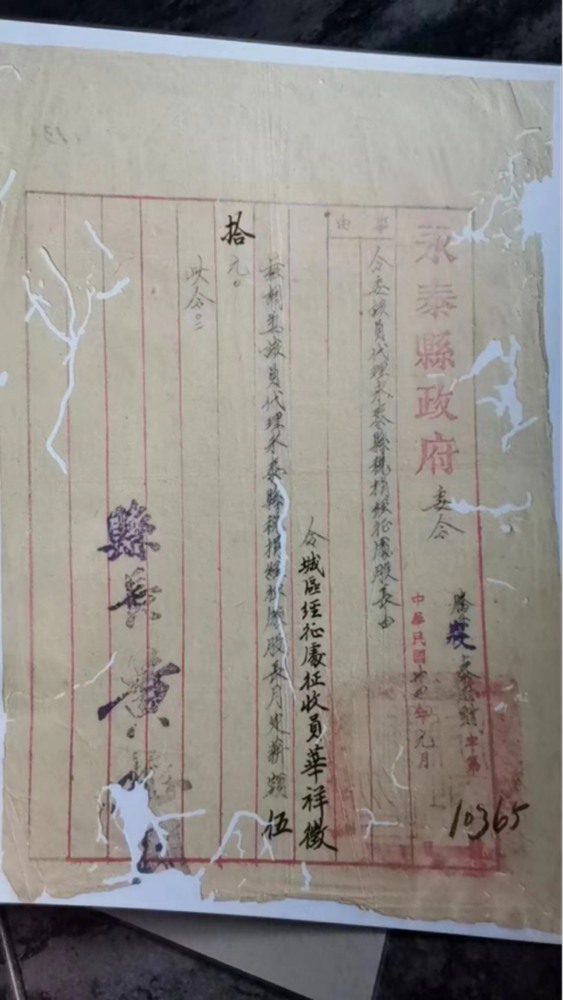 永泰縣政府 委令
字第
10365
中華民國卅四年元月
事由
令委該員代理永泰縣稅捐經征處股長由
令城區經征處征收員華祥徵
茲制委該員代理永泰縣稅捐經征處股長月支薪額伍
拾元。
此令。
縣長黃